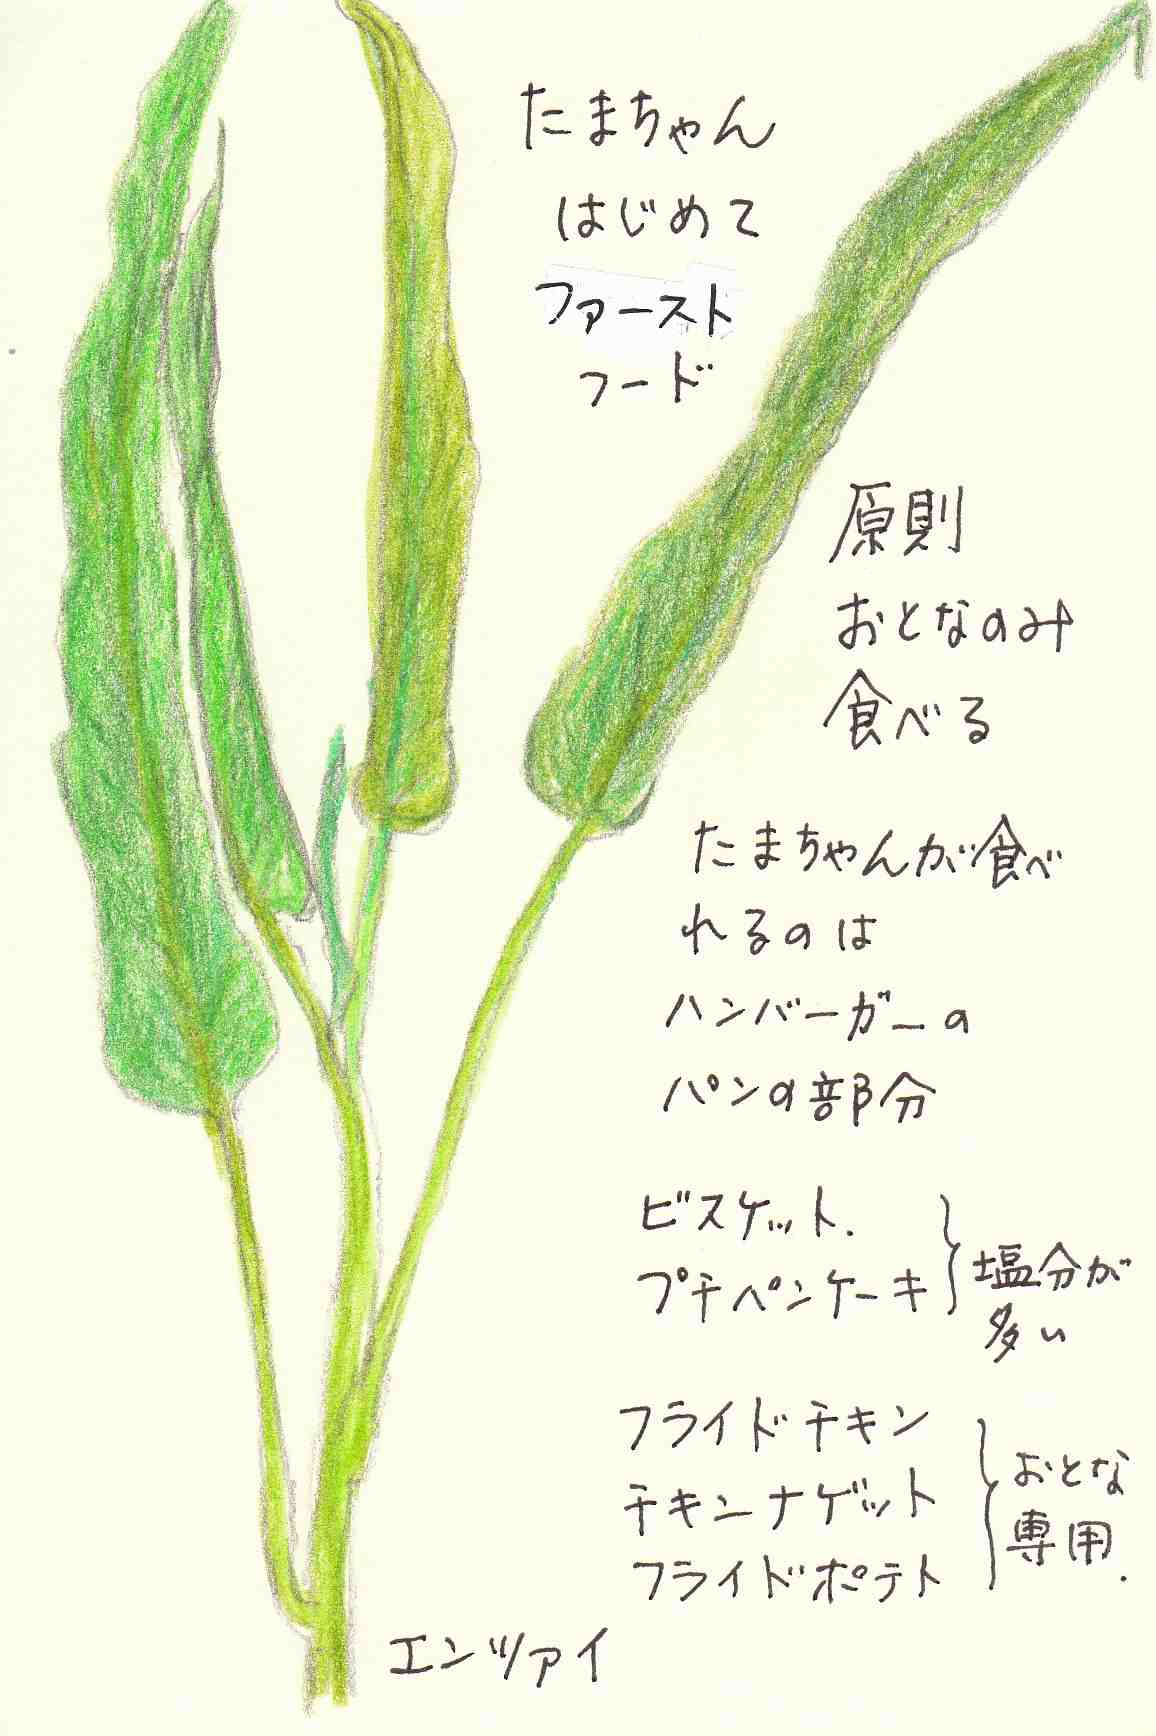 たまちゃん
はじめて
ファースト
フード
原則
おとなのみ
食べる
たまちゃんが食べ
れるのは
ハンバーガーの
パンの部分
ビスケット.
プチパンケーキ
塩分が
多い
フライドチキン
チキンナゲット
フライドポテト
おとな
専用.
エンツァイ